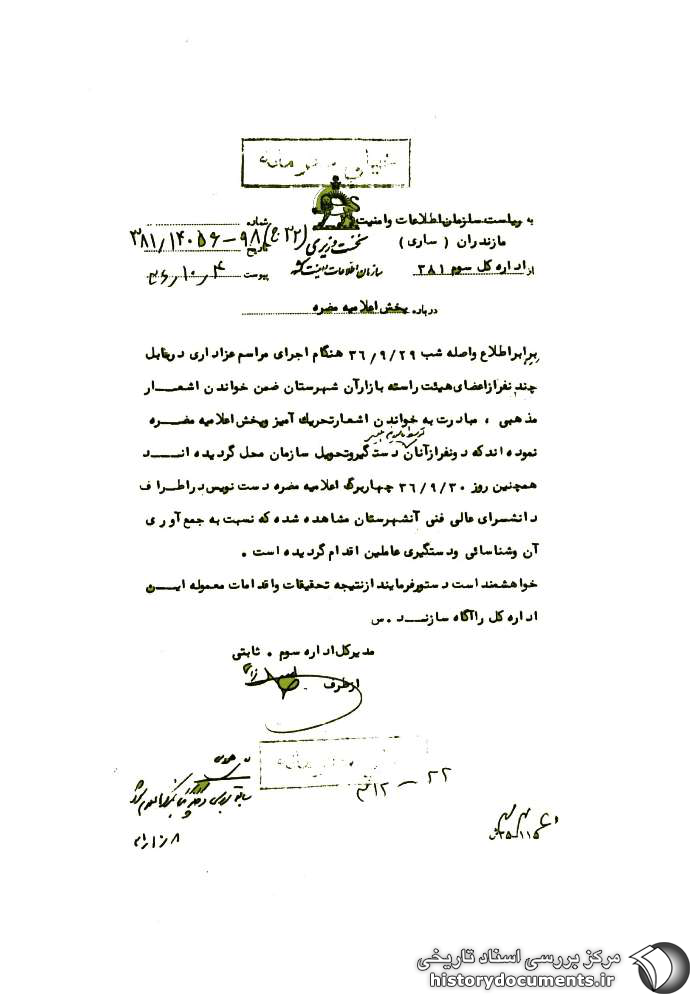 به ریاست سازمان اطلاعات و امنیت
مازندران ( ساری )
از اداره کل سوم ۳۸۱
نخست وزیری
سازمان اطلاعات و امنیت کشور
شماره
تاریخ
پیوست
۳۸۱/۱۴۰۵۶-۹۸
درباره پخش اعلامیه مضره
برابر اطلاع واصله شب ۳۶/۹/۲۹ هنگام اجرای مراسم عزاداری در مقابل
چند نفر از اعضای هیئت راسته بازار آن شهرستان ضمن خواندن اشعار
مذهبی ، مبادرت به خواندن اشعار تحریک آمیز و پخش اعلامیه مضره
نموده اند که دو نفر از آنان دستگیر و تحویل سازمان محل گردیده اند
همچنین روز ۳۶/۹/۳۰ چهار برگ اعلامیه مضره دست نویس در اطراف
دانشسرای عالی فنی آنشهرستان مشاهده شده که نسبت به جمع آوری
آن و شناسائی و دستگیری عاملین اقدام گردیده است .
خواهشمند است دستور فرمایند از نتیجه تحقیقات و اقدامات معموله این
اداره کل را آگاه سازند . س
مدیر کل اداره سوم . ثابتی
از طرف
مرکز بررسی اسناد تاریخی
historydocuments.ir